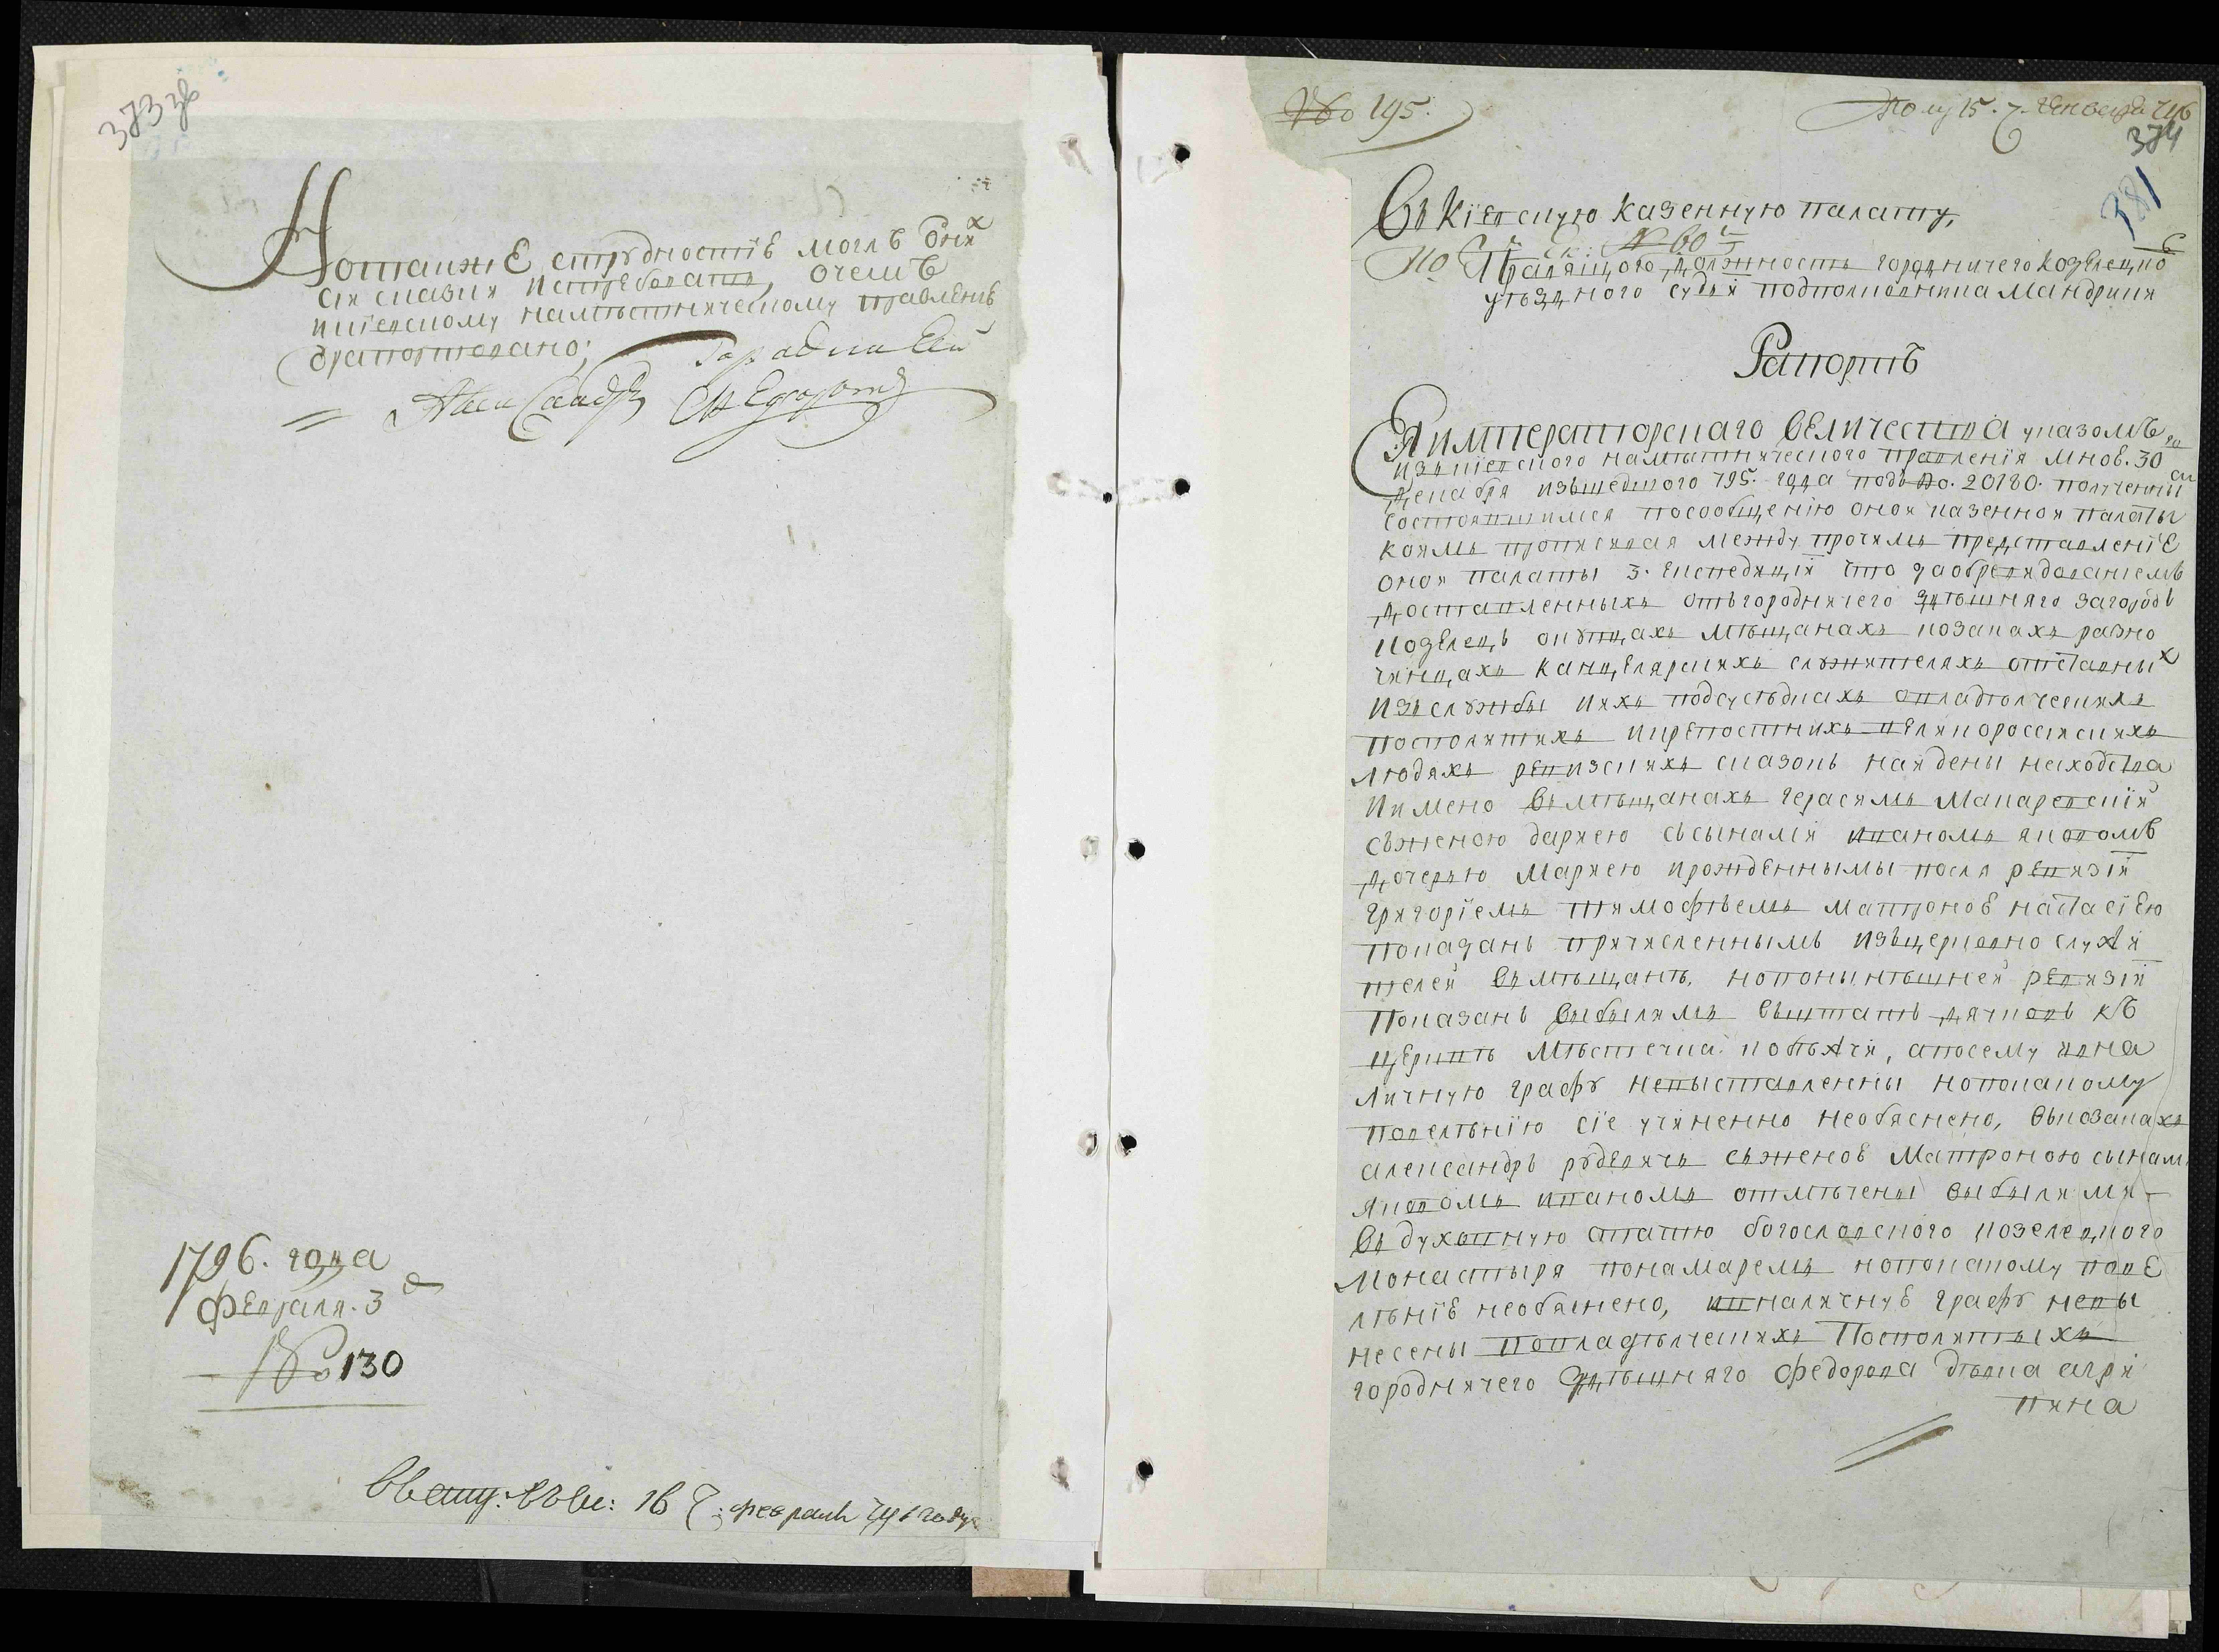 373 зв
Но также струдностїе могль оних
сїи сказки истребовать, очемъ
киїевскому наместническому правленїю
отрапортовано;
Александръ Федоровъ
1796. года
Февраля. 3
No 130
16 февраля 796 году
No 195.
Полу 15. генваря 796
374
381
Въ Кїевскую казенную палату,
No 60
правящого должность городничего козелецко
уезднаго судьи подполковника Мандрики
Рапортъ
Ея императорскаго величества указомъ
изъ киевского наместнического правленїя мнов. 30
декабря изшедшого 795. года подъ No. 20180. полученны
состоявшимся посообщенїю оной казенной палаты
коимъ прописивая между прочимъ представленїе
оной палаты 3. експедицїи что заобревидованїемъ
доставленныхъ отъ городничего здешняго загородъ
козелецъ окупцахъ мещанахъ козакахъ разно
чинцахъ канцелярскихъ служителяхъ отставных
изслужбы ихъ подсуседкахъ владелческихъ
посполитихъ икрепостнихъ великоросейскихъ
людяхъ ревизскихъ сказокъ найдены неходства
Имено въ мещанахъ герасимъ Макаревскїй
съженою дариею сьсынами иваномъ яковомъ
дочерью Мариею ирожденнымы после ревизїи
григорїемъ тимофеемъ матроною настасїею
показанъ причисленнымъ изъцерковно служи
телей въ мещане, нопонынешней ревизїи
показанъ выбылимъ въштатъ дячковъ къ
церкве местечка кобижчи, апосему ина
личную графу невыставленны нопокакому
повеленїю сїе учиненно необяснено, въкозакахъ
александръ рудевичъ съженою Матроною сынам
яковомъ иваномъ отмечены выбылими
въ духовную статю богословского козелецкого
монастыря понамаремъ нопокакому пове
ленїю необяснено, ивналичную графу невы
несены повладелческихъ Посполитыхъ
городничего здешняго федорова девка агри
пина